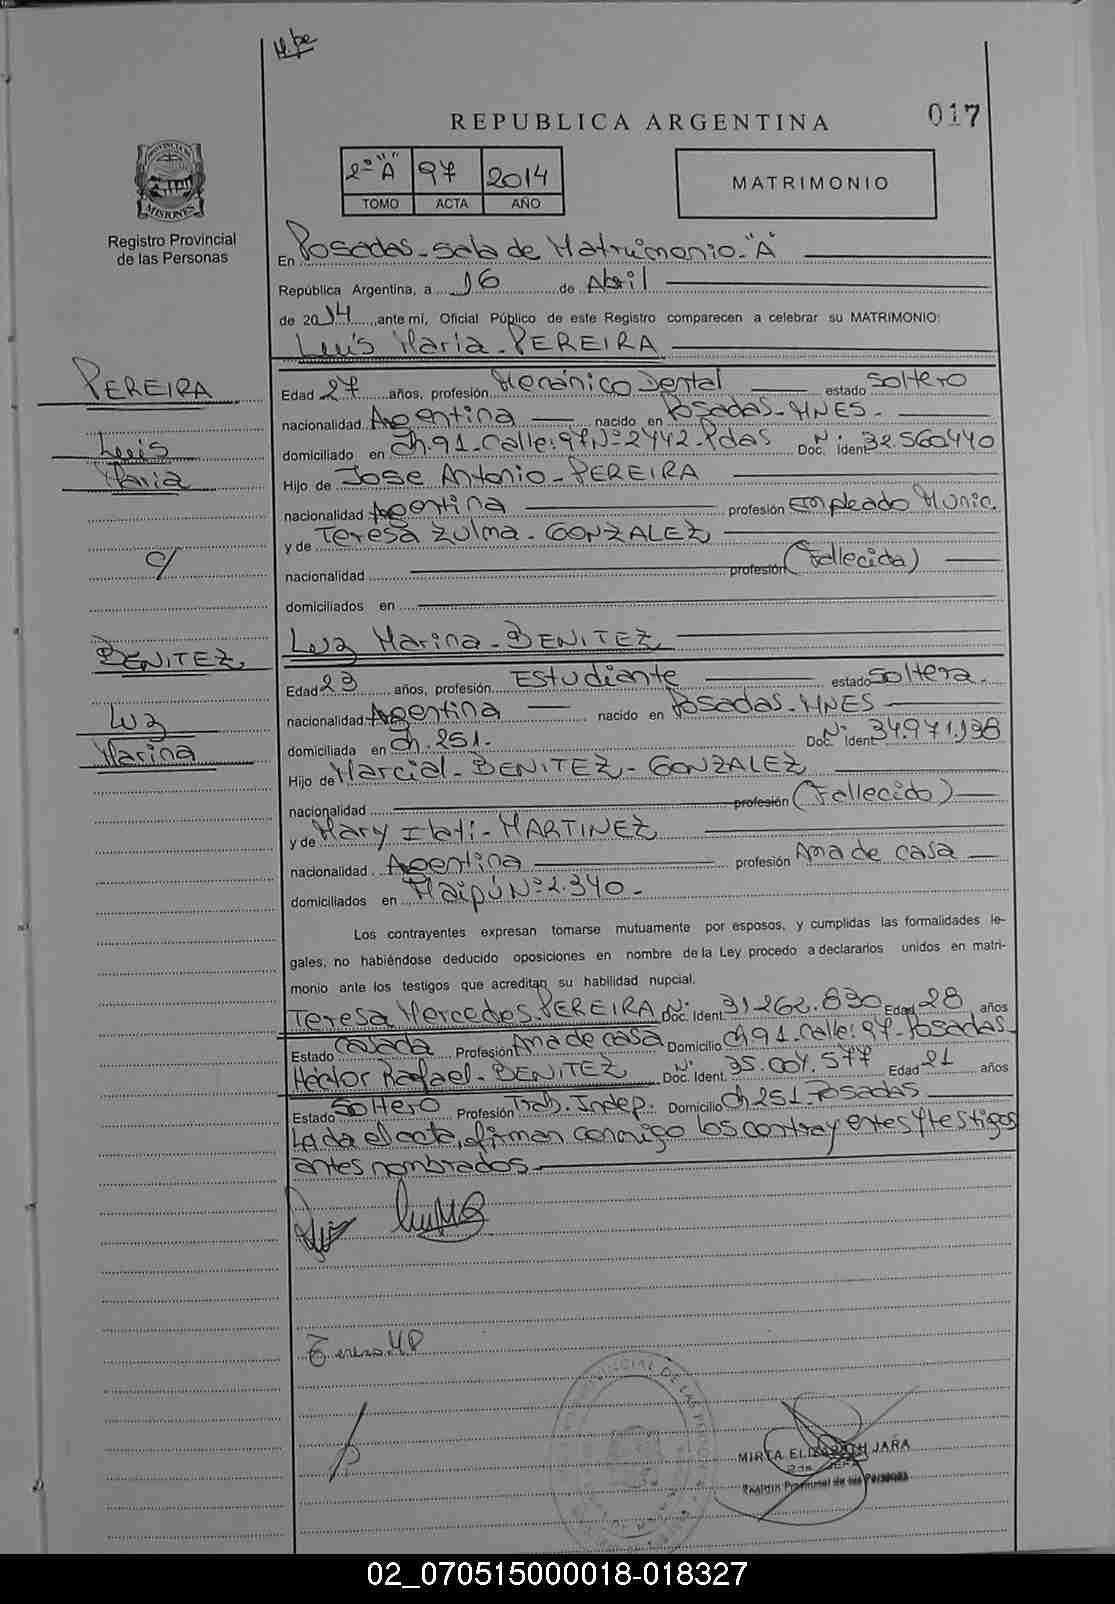 REPUBLICA ARGENTINA
017
2º "A" 97 2014
TOMO ACTA AÑO
MATRIMONIO
PROVINCIA DE MISIONES
Registro Provincial
de las Personas
En Posadas - Sala de Matrimonio - "A"
República Argentina, a 16 de Abril
de 2014, ante mí, Oficial Público de este Registro comparecen a celebrar su MATRIMONIO:
Luis Maria - PEREIRA
PEREIRA
Luis
Maria
c/
BENITEZ
Luz
Marina
Edad 27 años, profesión Mecánico Dental estado Soltero
nacionalidad Argentina nacido en Posadas - MNES -
domiciliado en Ch. 91 - Calle: 97 Nº 2442 - Pdas Doc. Nº Ident 32.560440
Hijo de Jose Antonio - PEREIRA
nacionalidad Argentina profesión Empleado Munic.
y de Teresa Zulma - GONZALEZ
nacionalidad profesión (Fallecida)
domiciliados en
Luz Marina - BENITEZ
Edad 23 años, profesión Estudiante estado Soltera.
nacionalidad Argentina nacido en Posadas - MNES
domiciliada en Ch. 251. Doc. Nº Ident 34.971.138
Hijo de Marcial - BENITEZ - GONZALEZ
nacionalidad profesión (Fallecido)
y de Mary Itati - MARTINEZ
nacionalidad Argentina profesión Ama de casa
domiciliados en Maipú Nº 2.340 -
Los contrayentes expresan tomarse mutuamente por esposos, y cumplidas las formalidades le-
gales, no habiéndose deducido oposiciones en nombre de la Ley procedo a declararlos unidos en matri-
monio ante los testigos que acreditan su habilidad nupcial.
Teresa Mercedes PEREIRA Doc. Nº Ident. 31.262.830 Edad 28 años
Estado Casada Profesión Ama de casa Domicilio Ch 91 - Calle: 97 - Posadas
Héctor Rafael - BENITEZ Doc. Nº Ident. 35.004.577 Edad 21 años
Estado Soltero Profesión Trab. Indep. Domicilio Ch 251 - Posadas
Leída el acta, firman conmigo los contrayentes y testigos
antes nombrados
MIRTA ELIZABETH JARA
Registro Provincial de las Personas
02_070515000018-018327